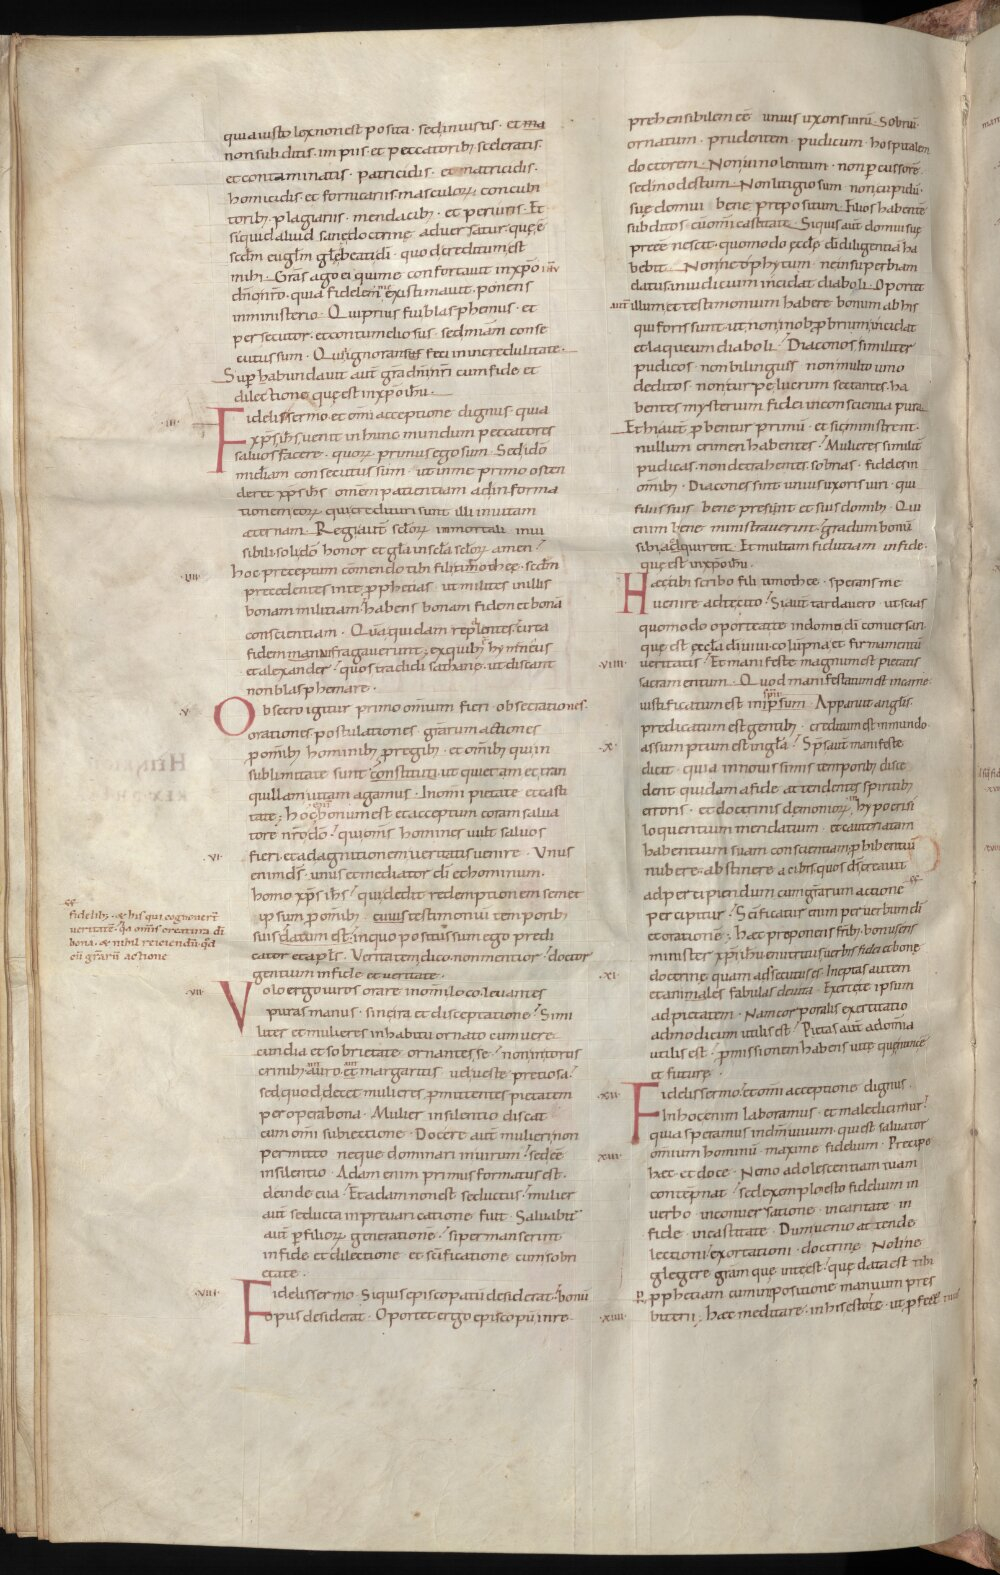 quia iusto lex non est posita · sed iniustis · et ma
non subditis · impiis · et peccatorib; sceleratis ·
et contaminatis · patricidis · et matricidis ·
homicidis · et fornicariis · masculorꝝ concubi
toribꝫ · plagiariis · mendacibꝫ · et periuris · Et
siquid aliud sanę doctrinę aduersatur · quę ē
scdm euglm glę beati di · quod creditum est
mihi · Gras ago ei qui me confortauit in xpo
dno nro · quia fidelem me existimauit · ponens
in ministerio · Qui prius fui blasphemus · et
persecutor · et contumeliosus · sed miam conse
cutus sum · Quia ignorans feci in incredulitate ·
Suphabundauit aut gra dni nri cum fide et
dilectione quę est in xpo ihu ·
·III· Fidelis sermo et omi acceptione dignus · quia
xps ihs uenit in hunc mundum peccatores
saluos facere · quorꝝ primus ego sum · Sed ido
miam consecutus sum · ut in me primo osten
deret xps ihs omem patientiam ad informa
tionem eorꝝ qui credituri sunt illi in uitam
aeternam · Regi aut sclorꝝ immortali inui
sibili soli do honor et gla in scla sclorꝝ amen
·IIII· hoc preceptum commendo tibi fili timothee · scdm
precedentes in te pphetias · ut milites in illis
bonam militiam · habens bonam fidem et bonā
conscientiam · Quā quidam repellentes · circa
fidem naufragauerunt · ex quibꝫ hymeneus
et alexander · quos tradidi sathanę · ut discant
non blasphemare ·
·V· Obsecro igitur primo omium fieri · obsecrationes ·
orationes · postulationes · grarum actiones
p omibꝫ hominibꝫ · p regibꝫ · et omibꝫ qui in
sublimitate sunt constituti · ut quietam et tran
quillam uitam agamus · In omi pietate et casti
tate · hoc enim bonum est et acceptum coram salua
tore nro do · qui oms homines uult saluos
·VI· fieri · et ad agnitionem ueritatis uenire · Unus
enim ds · unus et mediator di et hominum ·
homo xps ihs · qui dedit redemptionem semet
ipsum p omibꝫ · cuius testimonium temporibꝫ
suis datum est · in quo positus sum ego predi
cator et apls · Veritatem dico · non mentior · doctor
gentium in fide et ueritate ·
·VII· Volo ergo uiros orare in omi loco · leuantes
puras manus · sine ira et disceptatione · Simi
liter et mulieres in habitu ornato cum uere
cundia et sobrietate ornantes se · non in tortis
crinibꝫ aut auro · aut margaritis uel ueste pretiosa ·
sed quod decet mulieres · pmittentes pietatem
per opera bona · Mulier in silentio discat
cum omi subiectione · Docere aut mulieri non
permitto neque dominari in uirum · sed eē
in silentio · Adam enim primus formatus est ·
deinde eua · Et adam non est seductus · mulier
aut seducta in preuaricatione fuit · Saluabit
aut p filiorꝝ generatione · si permanserint
in fide et dilectione et scificatione cum sobri
etate ·
·VIII· Fidelis sermo · Siquis episcopatū desiderat · bonū
opus desiderat · Oportet ergo episcopū inre
fidelibꝫ · & his qui cognouert
ueritatē · qa omis creatura di
bona · & nihil reiciendū · qd
cū grarū actione
prehensibilem eē unius uxoris uirū · Sobriū ·
ornatum · prudentem · pudicum · hospitalem
doctorem · Non uinolentum · non pcussorē
sed modestum · Non litigiosum · non cupidū ·
suę domui bene prepositum · Filios habentē
subditos · cū omi castitate · Siquis aut domui suę
preeē nescit · quomodo ecclę di diligentia ha
bebit · Non neophytum · ne in superbiam
datus in iudicium incidat diaboli · Oportet
aut illum et testimonium habere bonum ab his
qui foris sunt · ut non in obpbrium incidat
et laqueum diaboli · Diaconos similiter
pudicos · non bilingues non multo uino
deditos · non turpe lucrum sectantes · ha
bentes mysterium fidei in conscientia pura
Et hi aut pbentur primū · et sic ministrent ·
nullum crimen habentes · Mulieres similit
pudicas · non detrahentes · sobrias · fideles in
omibꝫ · Diacones sint unius uxoris uiri · qui
filiis suis bene presunt et suis domibꝫ · Qui
enim bene ministrauerint · gradum bonū
sibi adquirent · Et multam fidutiam in fide ·
quę est in xpo ihu ·
Haec tibi scribo fili timothee · sperans me
uenire ad te cito · Si aut tardauero · ut scias
quomodo oporteat te in domo di conuersari ·
quę est eccla di uiui · columpna et firmamentū
·VIIII· ueritatis · Et manifeste magnum est pietatis
sacramentum · Quod manifestatum est in carne
iustificatum est in spū · Apparuit anglis ·
predicatum est gentibꝫ · creditum est in mundo
·X· assumptum est in gla · Sps aut manifeste
dicit · quia in nouissimis temporibꝫ disce
dent quidam a fide · attendentes spiritibꝫ
erroris · et doctrinis demoniorꝝ in hypocrisi
loquentium mendatium · et cauteriatam
habentium suam conscientiam · phibentiū
nubere · abstinere a cibis · quos ds creauit
ad percipiendum cum grarum actione
percipitur · Scificatur enim per uerbum di
et orationē · hęc preponens fribꝫ · bonus eris
minister xpi ihu · enutritus uerbis fidei et bonę
·XI· doctrinę · quam adsecutus es · Ineptas autem
et aniles fabulas deuita · Exerce te ipsum
ad pietatem · Nam corporalis exercitatio
ad modicum utilis est · Pietas aut ad omia
utilis est · pmissionem habens uitę quę nunc ē
et futurę ·
·XII· Fidelis sermo · et omi acceptione dignus ·
In hoc enim laboramus · et maledicimur ·
quia speramus in dm uiuum · qui est saluator
·XIII· omium hominū · maxime fidelium · Precipe
hęc · et doce · Nemo adolescentiam tuam
contempnat · sed exemplo esto fidelium in
uerbo · in conuersatione · in caritate · in
fide · in castitate · Dum uenio attende
lectioni · exortationi · doctrinę · Noli ne
glegere gram quę in te est · quę data est tibi
p pphetiam cum inpositione manuum pres
·XIIII· biterii · hęc meditare · in his esto · ut pfect